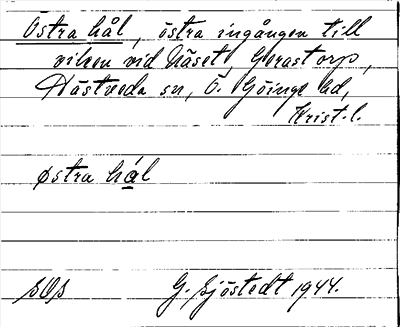 Östra hål, östra ingången till
viken vid Näset, Gerastorp,
Hästveda sn, Ö. Göinge hd,
Krist. l.
østra hål
G. Sjöstedt 1944.